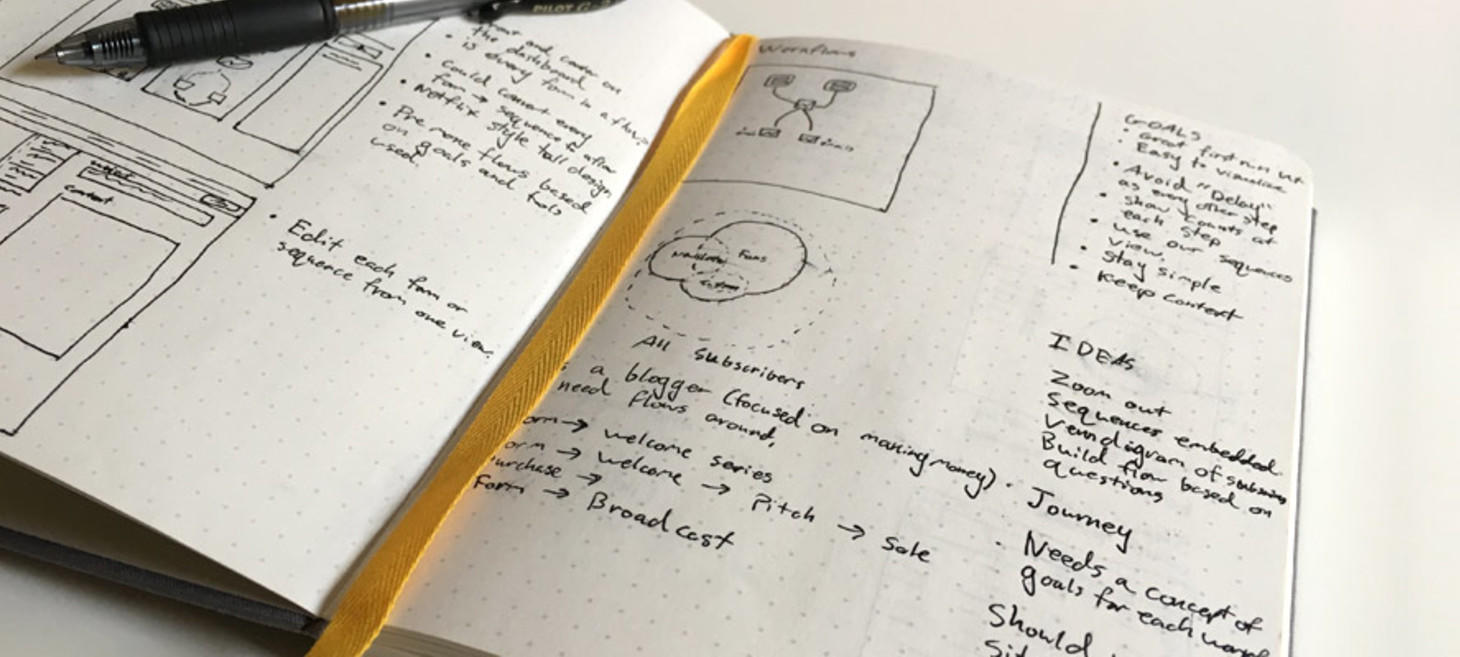 PILOT G-2
the dashboard
is every form in a flow
Could convert every
form → sequence
Netflix style tall design
Pre name flows based
on goals and
used
Edit each form or
sequence from one view.
Content
Workflows
Forms
All subscribers
a blogger (focused on making money)
need flows around,
orm → welcome series
orm → welcome → Pitch → Sale
urchase →
Form → Broadcast
GOALS
Great first run
Easy to visualize
Avoid "Delay"
as every other step
Show counts at
each step
use our sequences
view.
Stay simple
Keep context
IDEAS
Zoom out
Sequences embedded.
Venn diagram of
Build flow based on
questions
Journey
Needs a concept of
goals for each
Should